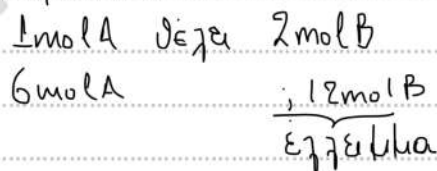 1molA θέλει 2molB
6molA ; 12molB
έλλειμμα